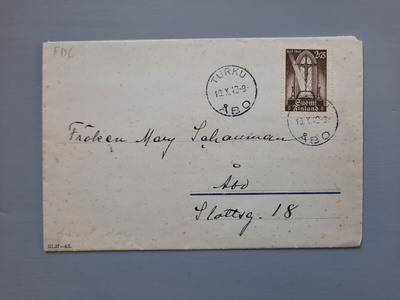 FDC
TURKU
10.X.42-9-
ÅBO
2.75
Suomi
Finland
10.X.42-9-
ÅBO
Fröken Mary Schauman
Åbo
Slottsg. 18